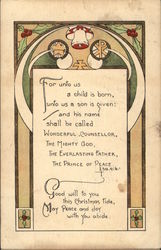 For unto us
a child is born,
unto us a son is given:
and his name
shall be called
Wonderful Counsellor,
The Mighty God,
The Everlasting Father,
The Prince of Peace.
Isaiah
Good will to you
this Christmas Tide,
May Peace and Joy
with you abide.